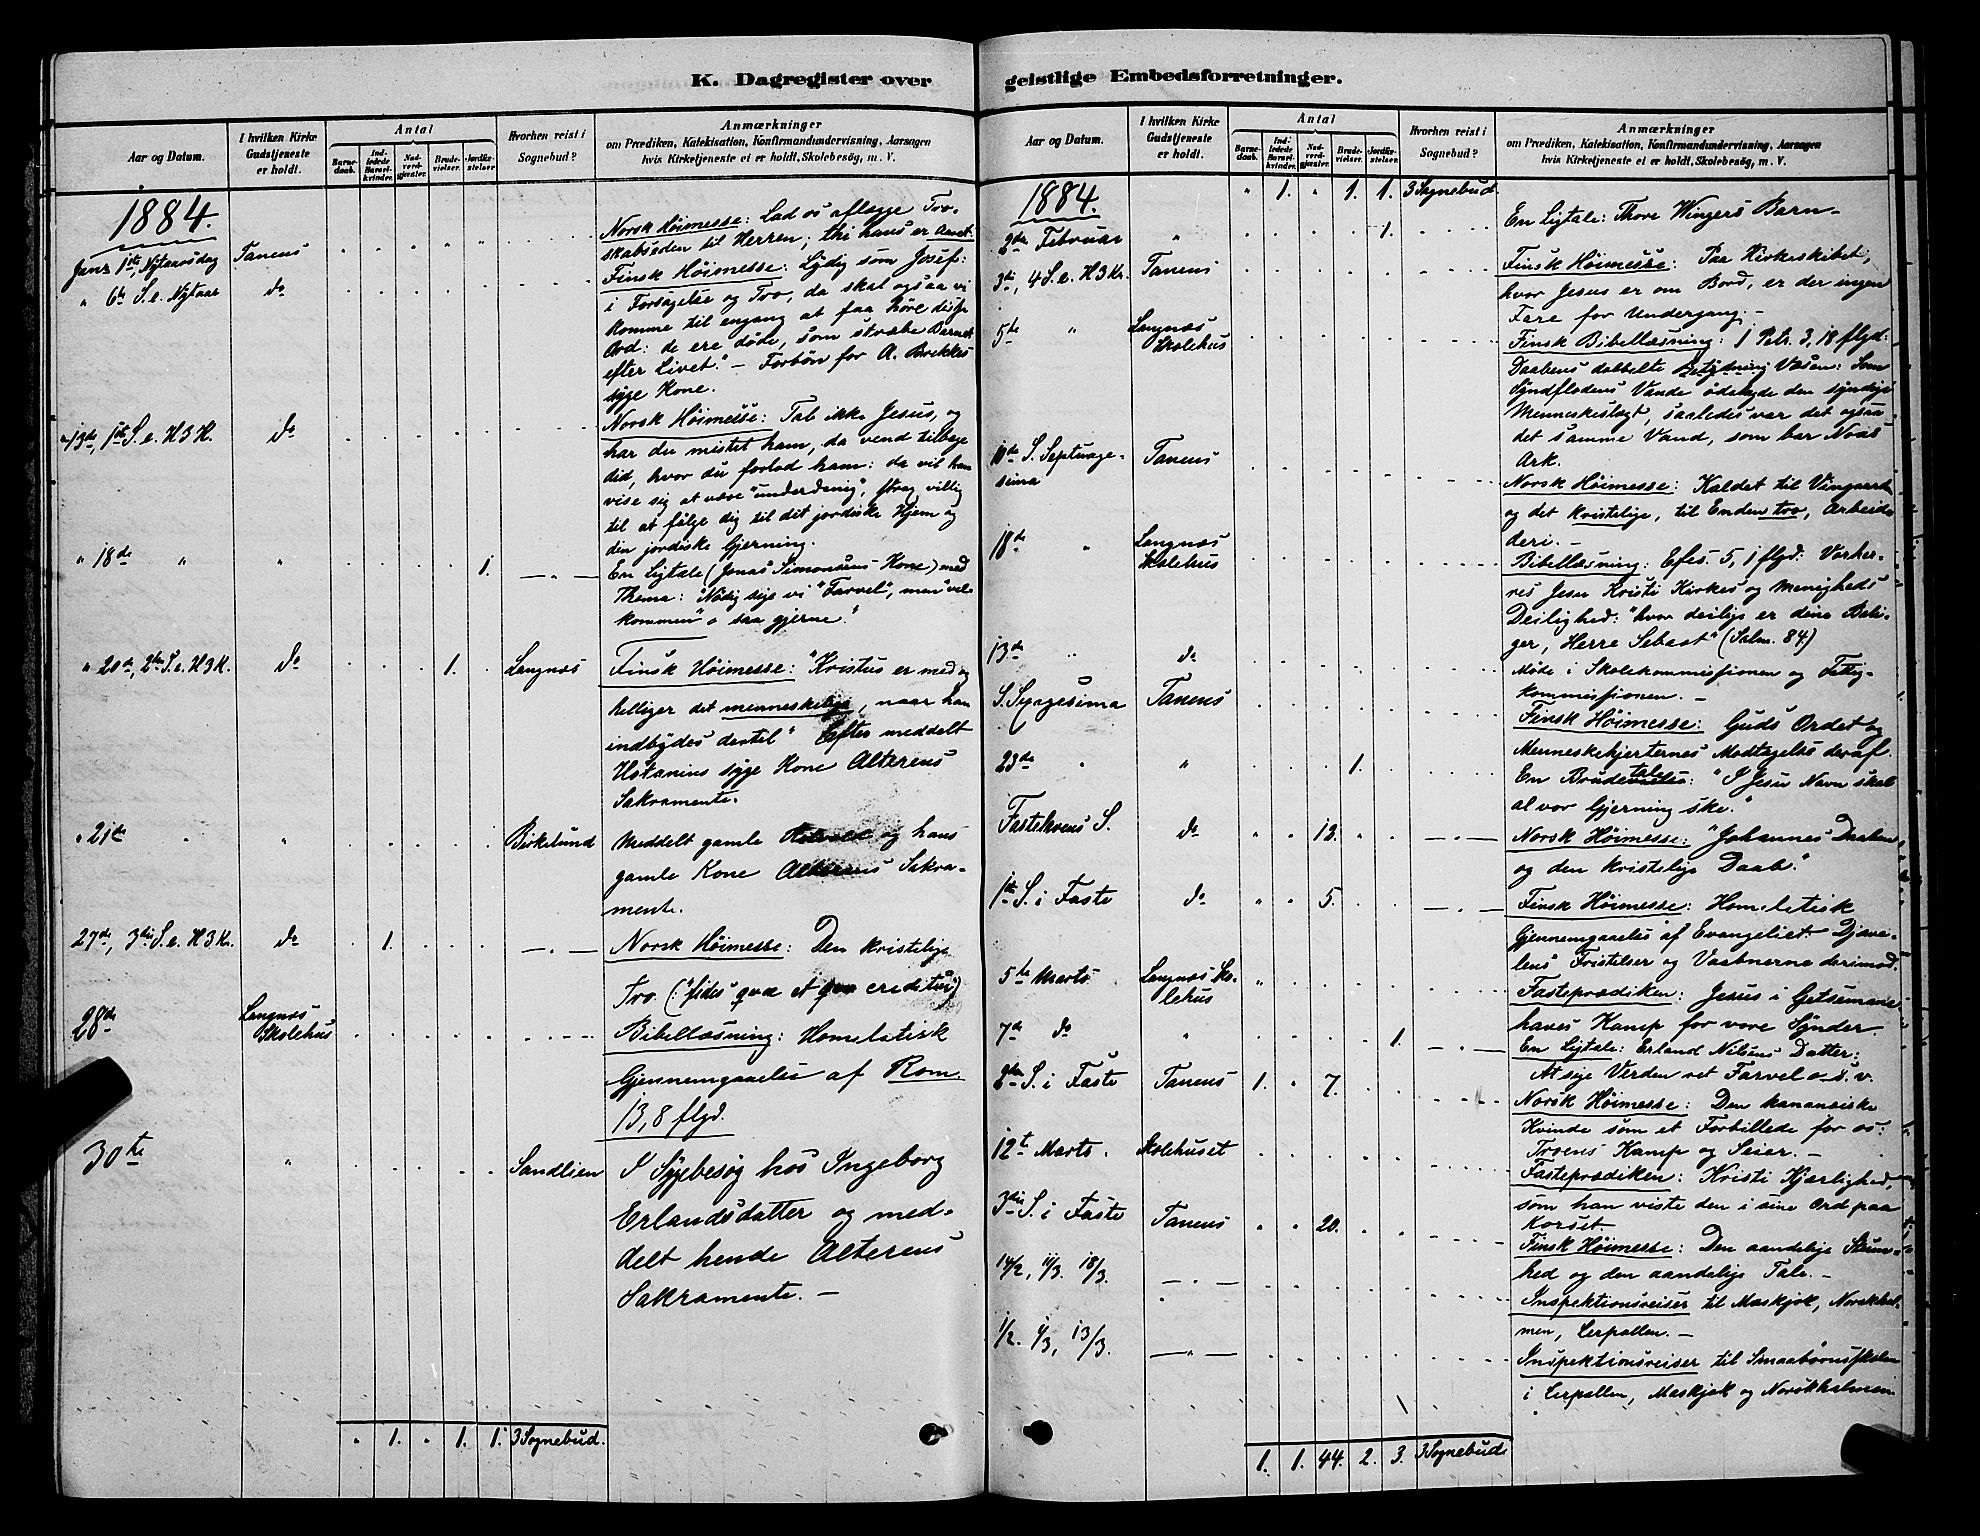 K. Dagregister over
Aar og Datum.
I hvilken Kirke Gudstjeneste er holdt.
Antal
Barnedaab.
Indledede Barselkvinder.
Nadverdgjæster.
Brudevielser.
Jordfæstelser
Hvorhen reist i Sognebud?
Anmærkninger
om Prædiken, Katekisation, Konfirmandundervisning, Aarsagen
hvis Kirketjeneste ei er holdt, Skolebesög, m. V.
1884.
Janr 1ste, Nytaarsdag Tanens
Norsk Höimesse: Lad os aflægge Tro-
skabseden til Herren; thi hans er Aaret.
" 6te S. e. Nytaar do
Finsk Höimesse: Lydig som Josef:
i Forsagelse og Tro, da skal ogsaa vi
komme til engang at faa höre disse
Ord: de ere döde, som stræbe Barnet
efter Livet." - Forbön for A. Brekkes
syge Kone.
" 13de, 1ste S. e. H3K. do
Norsk Höimesse: Tab ikke Jesus, og
har du mistet ham, da vend tilbage
did, hvor du forlod ham: da vil han
vise sig at være "underdanig", strax villig
til at fölge dig til dit jordiske Hjem og
den jordiske Gjerning.
" 18de " " 1. — " —
En Ligtale (Jonas Simonsens Kone) med
Thema: "Nödig sige vi "Farvel", men "vel-
kommen" o saa gjerne."
" 20de, 2den S. e. H3K. do 1. Langnæs
Finsk Höimesse: "Kristus er med og
helliger det menneskelige, naar han
indbydes dertil" Efter meddelt
syge Kone Alterens
Sakramente.
" 21de " " Birkelund
Meddelt gamle og hans
gamle Kone Alterens Sakra-
mente.
27de, 3die S. e. H3K. do 1. — " —
Norsk Höimesse: Den kristelige
Tro. ("fides qvæ et qva creditur")
28de Langnæs Skolehus
Bibellæsning: Homeletisk
Gjennemgaaelse af Rom.
13, 8 flgd.
30te " Sandlien
I Sygebesög hos Ingeborg
Erlandsdatter og med-
delt hende Alterens
Sakramente. —
" 1. " 1. 1. 3 Sognebud.
geistlige Embedsforretninger.
Aar og Datum.
I hvilken Kirke Gudstjeneste er holdt.
Antal
Barnedaab.
Indledede Barselkvinder.
Nadverdgjæster.
Brudevielser.
Jordfæstelser.
Hvorhen reist i Sognebud?
Anmærkninger
om Prædiken, Katekisation, Konfirmandundervisning, Aarsagen
hvis Kirketjeneste ei er holdt, Skolebesög, m. V.
1884. " 1. " 1. 1. 3 Sognebud.
2den Februar " 1.
En Ligtale: Thore Wingers Barn -
3die, 4 S. e. H3K. Tanens
Finsk Höimesse: Paa Kirkeskibet,
hvor Jesus er om Bord, er der ingen
Fare for Undergang. -
5te " Langnæs Skolehus
Finsk Bibellæsning: 1 Petr. 3, 18 flgd:
Daabens dobbelte Betydning Væsen: Som
Syndflodens Vande ödelagde den syndige
Menneskeslægt, saaledes var det ogsaa
det samme Vand, som bar Noas
Ark.
10de S. Septuage-
sima Tanens
Norsk Höimesse: Kaldet til Vingaarden
og det kristelige, til Enden tro, Arbeide
deri. -
18de " Langnæs Skolehus
Bibellæsning: Efes. 5, 1 flgd: Vorher-
res Jesu Kristi Kirkes og Menigheds
Deilighed: "hvor deilige er dine Boli-
ger, Herre Sebaot" (Salm. 84)
13de " do
Möde i Skolekommissionen og Fattig-
kommissionen. -
S. Sexagesima Tanens
Finsk Höimesse: Guds Ordet og
Menneskehjerternes Modtagelse deraf.
23de " " 1.
En Brudetale: "I Jesu Navn skal
al vor Gjerning ske."
Fastelavens S. do " " 12. — " —
Norsk Höimesse: "Johannes Daaben
og den kristelige Daab."
1ste S. i Faste do " " 5. — " —
Finsk Höimesse: Homeletisk
Gjennemgaaelse af Evangeliet: Djæve-
lens Fristelser og Vaabnerne derimod.
5te Marts Langnæs Sko-
lehus
Fasteprædiken: Jesus i Getsemane
haves Kamp for vore Synder.
7de do " 1. — " —
En Ligtale: Erland Nilsens Datter:
At sige Verden ret Farvel o. s. v.
2den S. i Faste Tanens 1. " 7.
Norsk Höimesse: Den kananæiske
Kvinde som et Forbillede for os:
Troens Kamp og Seier. -
12te Marts. Skolehuset
Fasteprædiken: Kristi Kjærlighed,
som han viste den i sine Ord paa
Korset.
3die S. i Faste Tanens " " 20.
Finsk Höimesse: Den aandelige Stum-
hed og den aandelige Tale. -
14/2, 11/3. 18/3. — " —
Inspektionsreiser til Maskjok, Norskhol-
men, Lerpollen. -
1/2. 1/3, 13/3. — " —
Inspektionsreiser til Smaabörnsskolen
i Lerpollen, Maskjok og Norskholmen
1. 1. 44. 2. 3. 3 Sognebud.